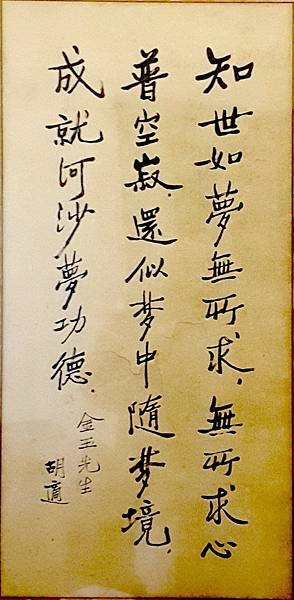 知世如夢無所求，無所求心
普空寂，還似梦中隨梦境，
成就河沙夢功德．
金玉先生
胡適